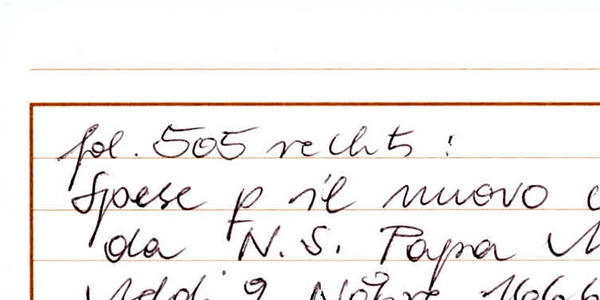 fol. 505 rechts :
Spese p il nuovo
da N.S. Papa
Addi 9 Nobre